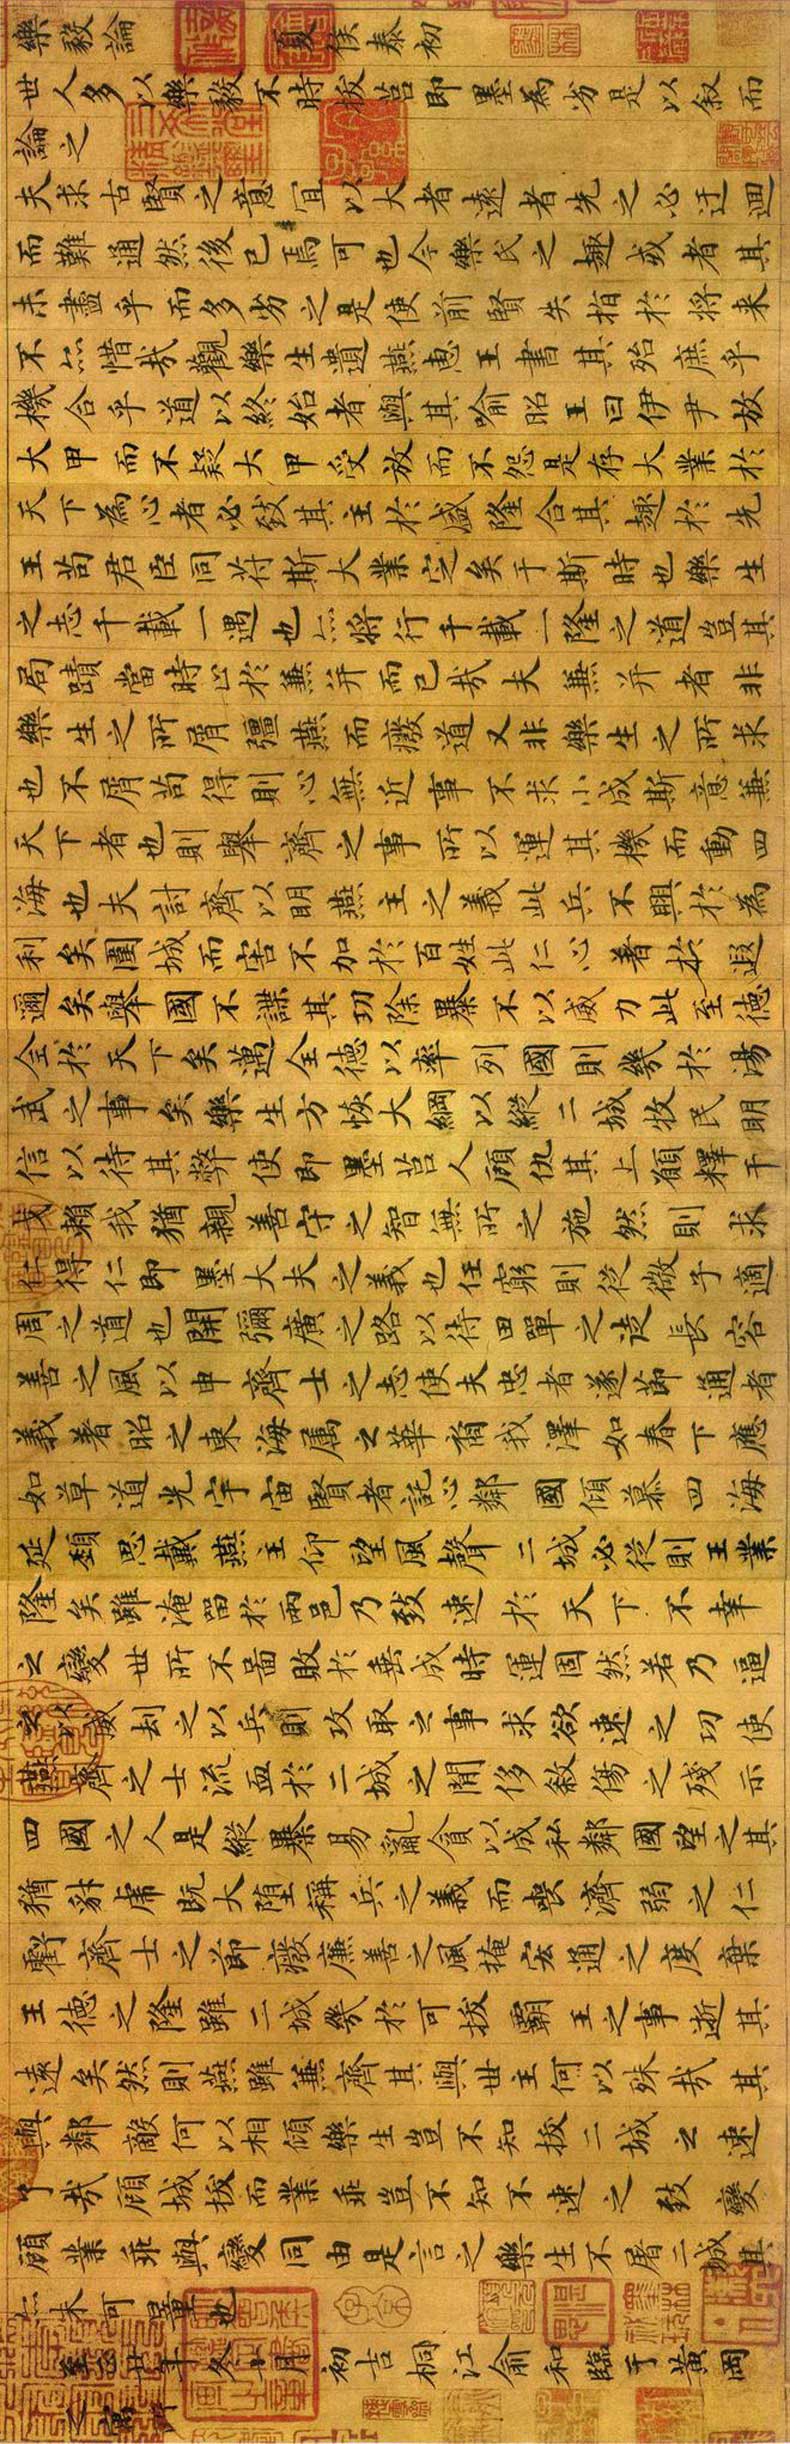 樂毅論 夏侯泰初
世人多以樂毅不時拔莒即墨為劣是以叙而
論之
夫求古賢之意宜以大者遠者先之必迂迴
而難通然後已焉可也今樂氏之趣或者其
未盡乎而多劣之是使前賢失指於將來
不亦惜哉觀樂生遺燕惠王書其殆庶乎
機合乎道以終始者與其喻昭王曰伊尹放
大甲而不疑大甲受放而不怨是存大業於
天下為心者必致其主於盛隆合其趣於先
王苟君臣同符斯大業定矣于斯時也樂生
之志千載一遇也亦將行千載一隆之道豈其
局蹟當時止於蒹并而已哉夫蒹并者非
樂生之所屑彊燕而癈道又非樂生之所求
也不屑苟得則心無近事不求小成斯意蒹
天下者也則舉齊之事所以運其機而動四
海也夫討齊以明燕主之義此兵不興於為
利矣圍城而害不加於百姓此仁心著於遐
邇矣舉國不謀其功除暴不以威力此至德
全於天下矣邁全德以率列國則幾於湯
武之事矣樂生方恢大綱以縱二城牧民明
信以待其弊使即墨莒人顧仇其上願釋干
戈賴我猶親善守之智無所之施然則求
仁得仁即墨大夫之義也任窮則從微子適
周之道也開彌廣之路以待田單之徒長容
善之風以申齊士之志使夫忠者遂節通者
義著昭之東海屬之華裔我澤如春下應
如草道光宇宙賢者託心鄰國傾慕四海
延頸思戴燕主仰望風聲二城必從則王業
隆矣雖淹留於兩邑乃致速於天下不幸
之變世所不啚敗於垂成時運固然若乃逼
之以威劫之以兵則攻取之事求欲速之功使
燕齊之士流血於二城之閒侈敘傷之殘示
四國之人是縱暴易亂貪以成私鄰國望之其
猶豺虎既大墮稱兵之義而喪濟弱之仁
虧齊士之節癈廉善之風掩宏通之度棄
王德之隆雖二城幾於可拔霸王之事逝其
遠矣然則燕雖蒹齊其與世主何以殊哉其
與鄰敵何以相傾樂生豈不知拔二城之速
了哉顧城拔而業乖豈不知不速之致變
顧業乖與變同由是言之樂生不屠二城其
亦未可量也
至正廿年冬十月初吉桐江俞和臨于黃岡
之寓